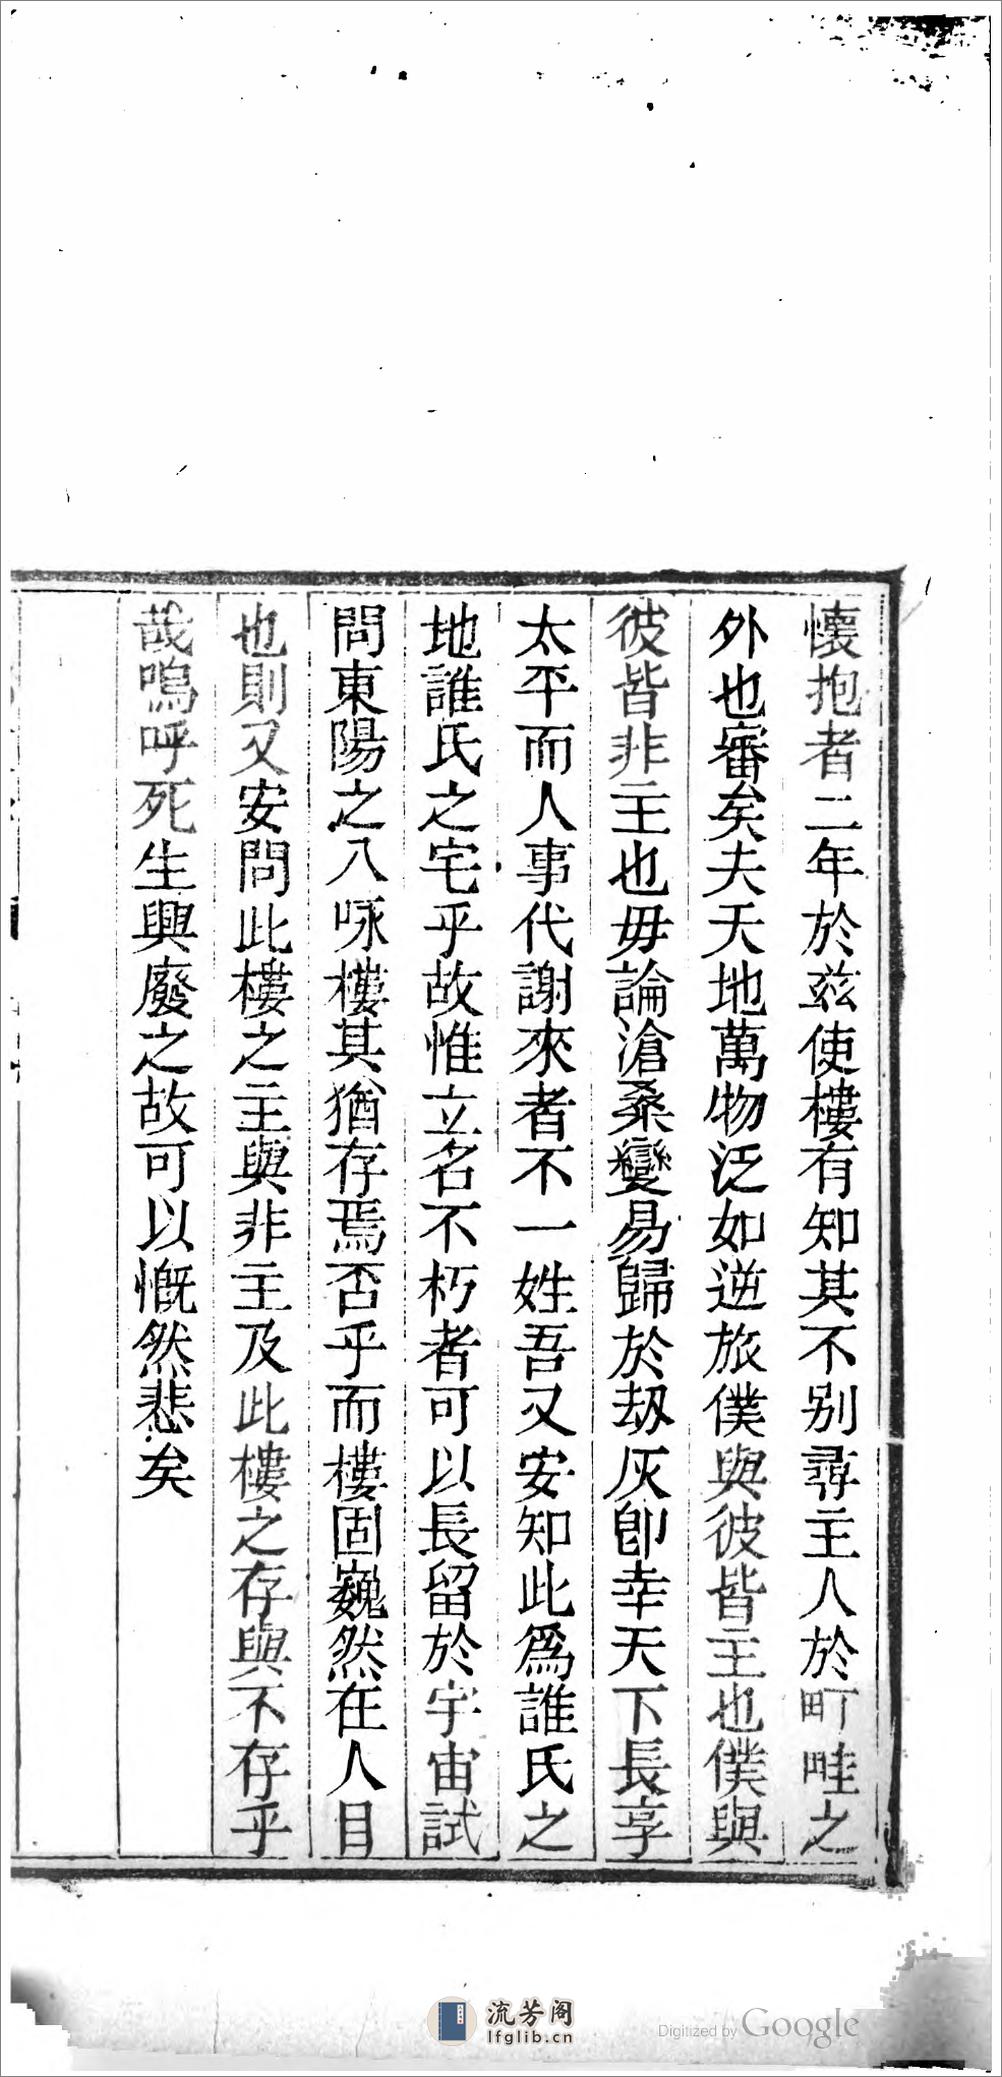 懷抱者二年於茲使樓有知其不別尋主人於町畦之
外也審矣夫天地萬物泛如逆旅僕與彼皆主也僕與
彼皆非主也毋論滄桑變易歸於刼灰卽幸天下長享
太平而人事代謝來者不一姓吾又安知此爲誰氏之
地誰氏之宅乎故惟立名不朽者可以長留於宇宙試
問東陽之八咏樓其猶存焉否乎而樓固巍然在人目
也則又安問此樓之主與非主及此樓之存與不存乎
哉嗚呼死生興廢之故可以慨然悲矣
流芳阁
lfglib.cn
Digitized by Google